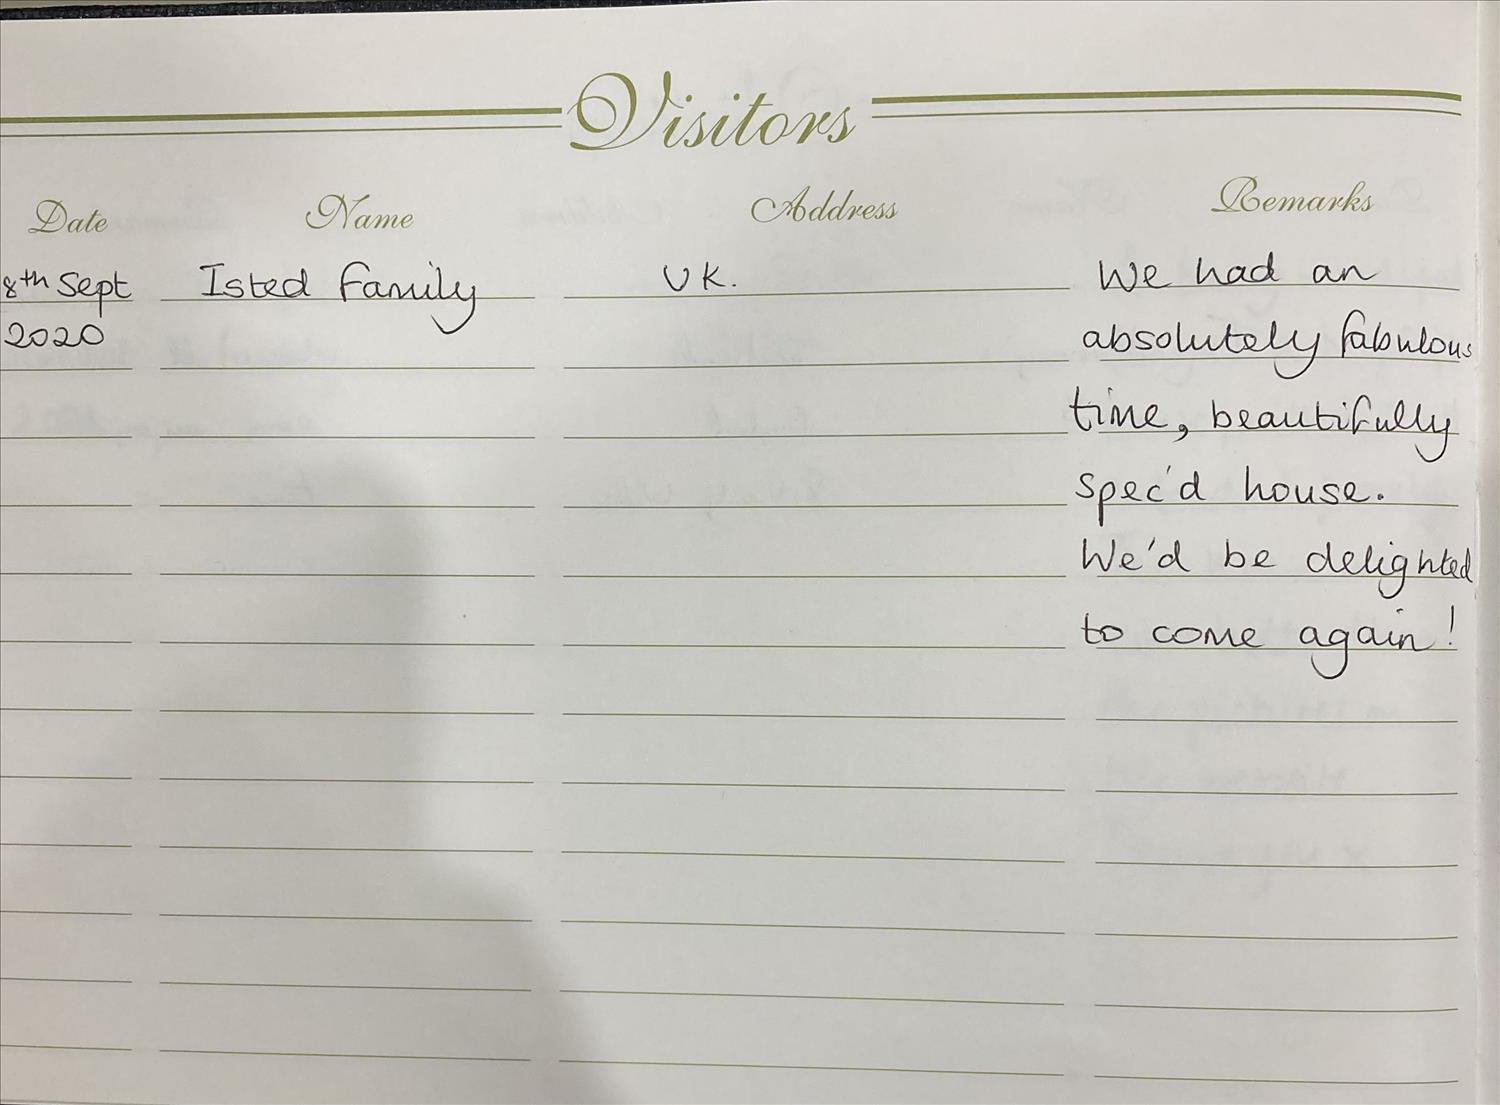 Visitors
Date Name Address Remarks
8th Sept Isted family UK. We had an
2020 absolutely fabulous
time, beautifully
spec'd house.
We'd be delighted
to come again!